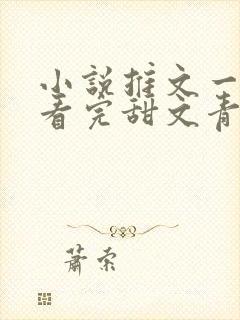 小說推文一
看完甜文青
蕭索